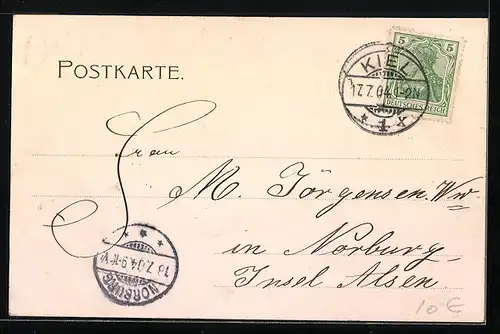 POSTKARTE.
5 5
DEUTSCHES REICH
KIEL
17.7.04.1-2N
* 1 *
Frau
M. Jörgensen Ww
in Norburg
Insel Alsen.
* * *
18.7.04.9-10V
NORBURG
10 €